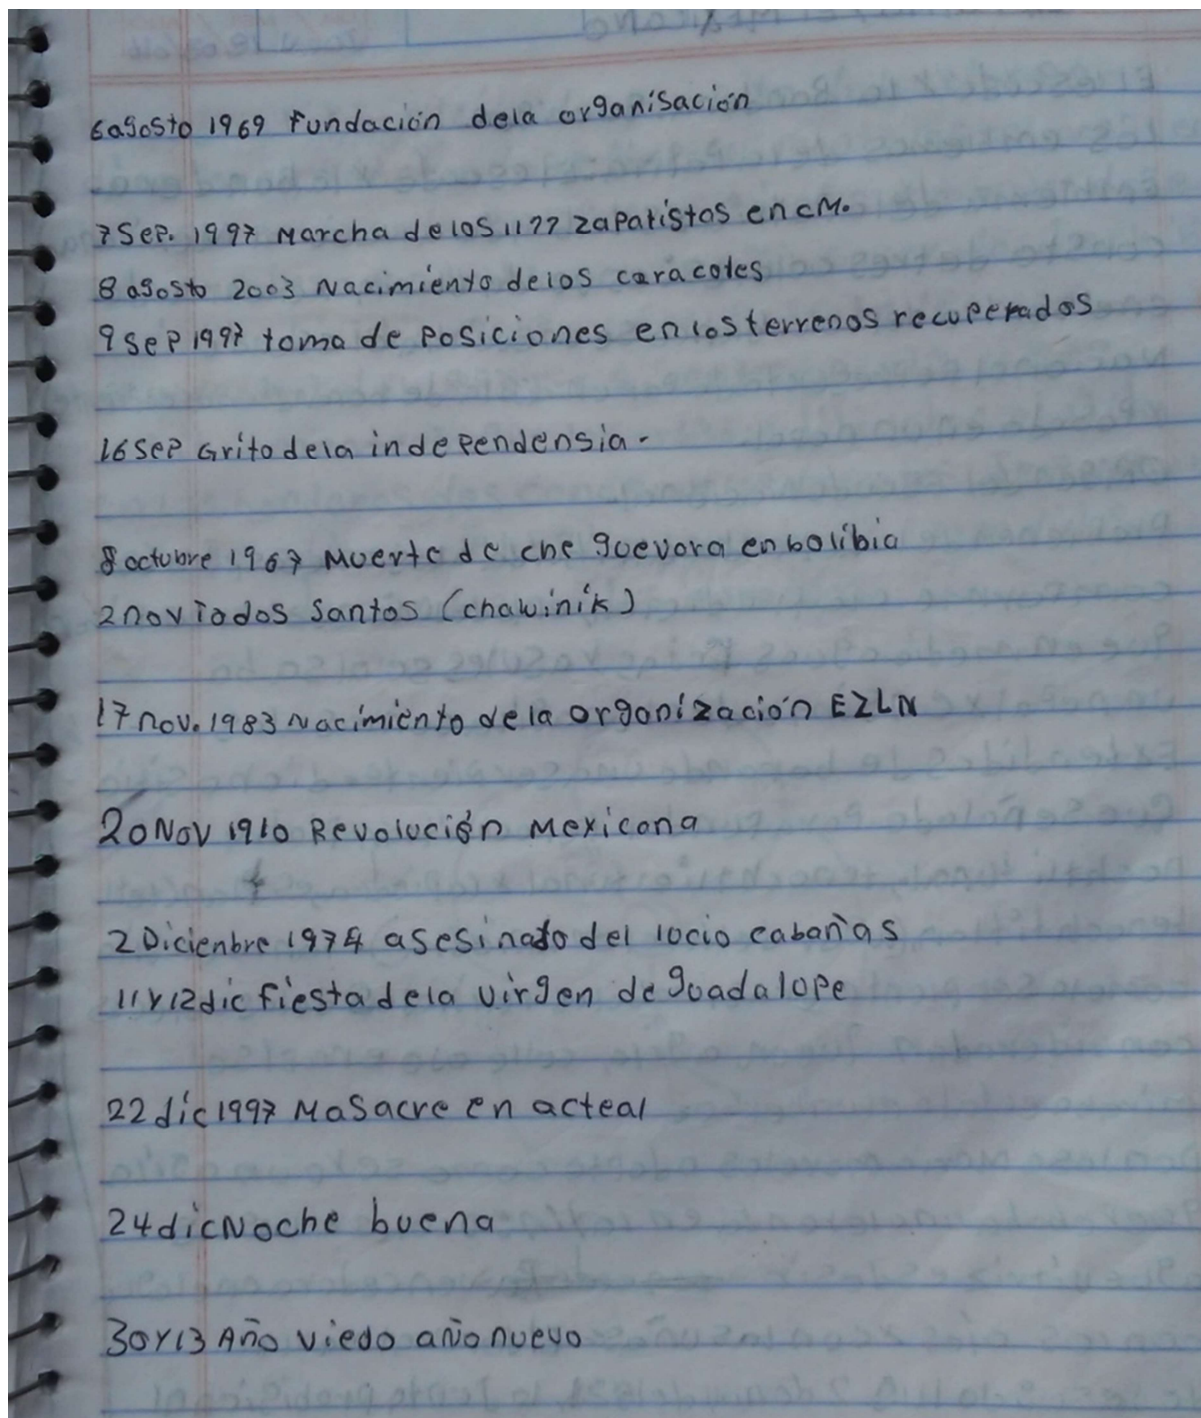 6 agosto 1969 Fundación dela organisación
7 Sep. 1997 Marcha de los 1177 zapatistas en cM.
8 agosto 2003 Nacimiento delos caracoles
9 sep 1997 toma de posiciones en los terrenos recuperados
16 sep Grito dela independensia.
8 octubre 1967 Muerte de che guevara en bolibia
2 nov Todos Santos (chawinik)
17 nov. 1983 Nacimiento de la organización EZLN
20 Nov 1910 Revolución Mexicana
2 Dicienbre 1974 asesinato del locio cabañas
11 y 12 dic fiesta dela virgen de guadalope
22 dic 1997 Masacre en acteal
24 dic Noche buena
30 y 13 Año viedo año nuevo